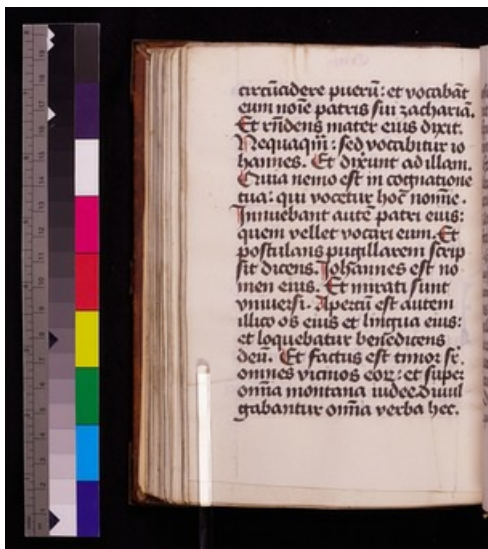 circūcidere puerū: et vocabāt
eum noīe patris sui zachariā.
Et rn̄dens mater eius dixit.
Nequaqm̄: sed vocabitur io
hannes. Et dixerunt ad illam.
Quia nemo est in cognatione
tua: qui vocetur hoc nomine.
Innuebant autē patri eius:
quem vellet vocari eum. Et
postulans pugillarem scrip
sit dicens. Johannes est no
men eius. Et mirati sunt
vniuersi. Apertū est autem
illico os eius et lingua eius:
et loquebatur benedicens
deū. Et factus est timor sr̄.
omnes vicinos eoꝝ: et super
om̄ia montana iudee diuul
gabantur om̄ia verba hec.